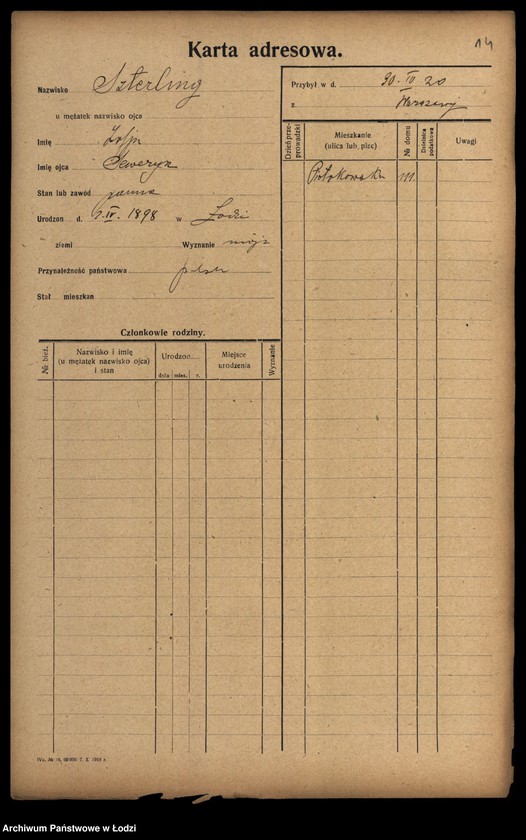 14
Karta adresowa.
Nazwisko Szterling
u mężatek nazwisko ojca
Imię Zofja
Imię ojca Seweryn
Stan lub zawód panna
Urodzon d. IV. 1898 w Łodzi
ziemi Wyznanie mojż
Przynależność państwowa polsk
Stał mieszkan
Członkowie rodziny.
№ bież.
Nazwisko i imię
(u mężatek nazwisko ojca)
i stan
Urodzon
dnia mies. r.
Miejsce
urodzenia
Wyznanie
Przybył w d. 30. IV 20
z Warszawy
Dzień przeprowadzki
Mieszkanie
(ulica lub, plac)
№ domu
Dzielnica podatkowa
Uwagi
Piotrkowska 111
Archiwum Państwowe w Łodzi